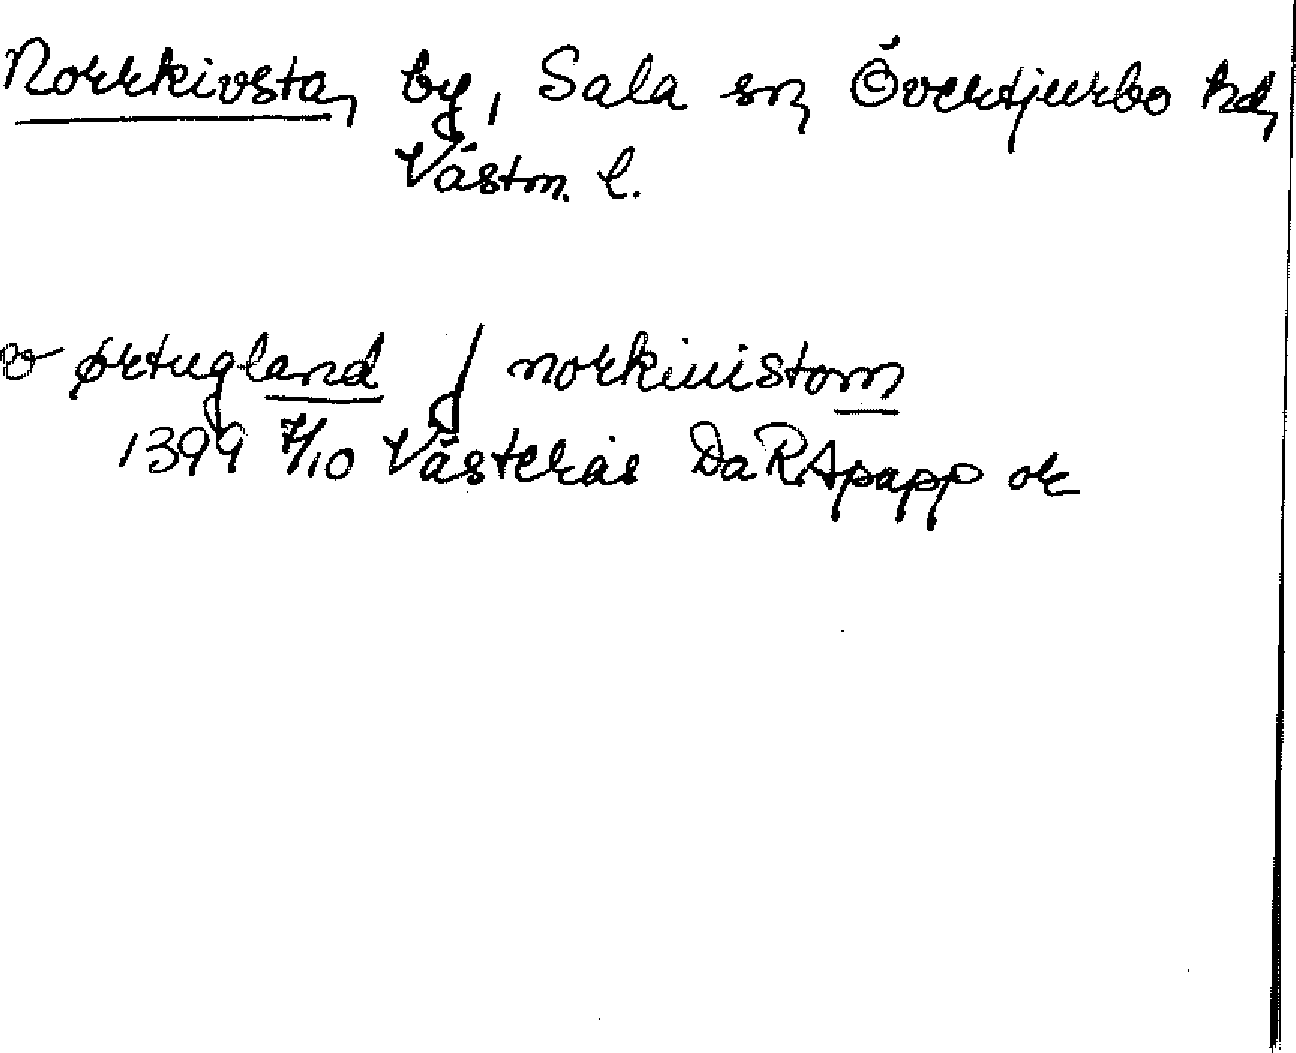 Norrkivsta, by, Sala sn, Övertjurbo hd,
Västm. l.
ørtugland j norkiuistom
1399 7/10 Västerås DaRApapp or